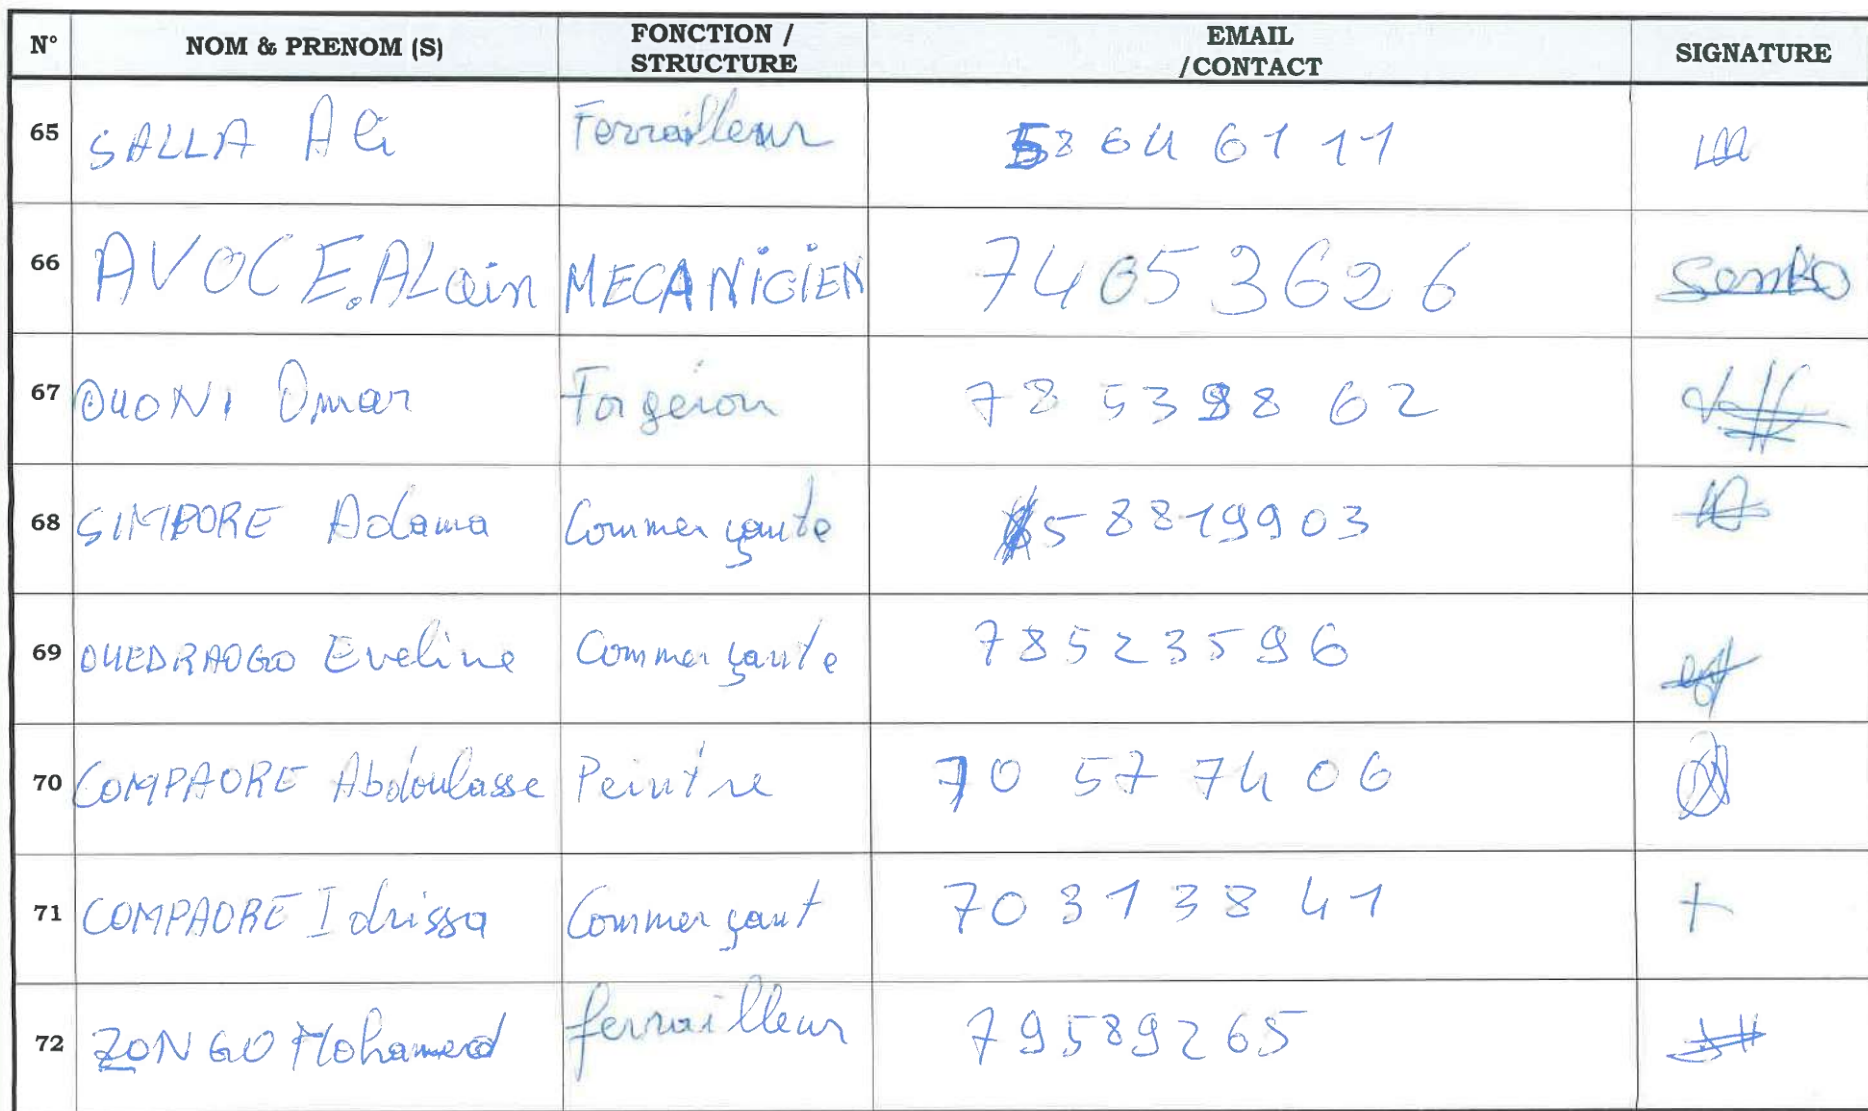 N° NOM & PRENOM (S) FONCTION / STRUCTURE EMAIL /CONTACT SIGNATURE
65 SALLA Ali Ferrailleur 58 64 61 11
66 AVOCE E. ALain MECANICIEN 74053626
67 OUONI Omar Forgeron 78 53 98 62
68 SIMPORE Adama Commerçante 58819903
69 OUEDRAOGO Eveline Commerçante 78523596
70 COMPAORE Abdoulasse Peintre 70 57 74 06
71 COMPAORE Idrissa Commerçant 70 31 38 41
72 ZONGO Mohamed ferrailleur 79589265